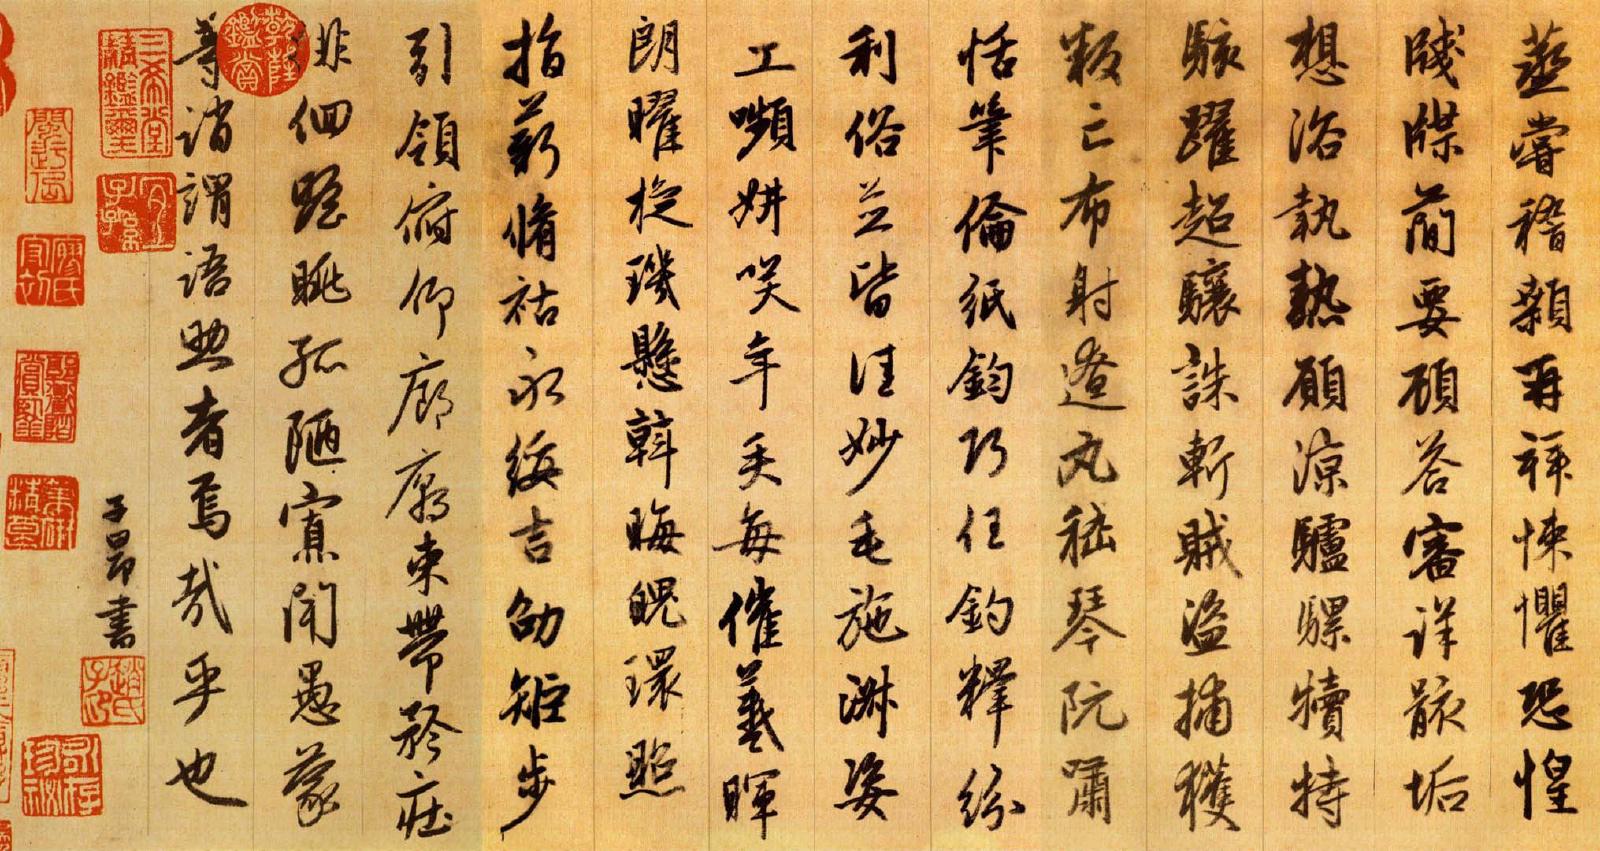 蒸嘗稽顙再拜悚懼恐惶
牋牒簡要顧答審詳骸垢
想浴執熱願涼驢騾犢特
駭躍超驤誅斬賊盜捕獲
叛亡布射遼丸嵇琴阮嘯
恬筆倫紙鈞巧任釣釋紛
利俗並皆佳妙毛施淑姿
工嚬妍咲年矢每催羲暉
朗曜旋璣懸斡晦魄環照
指薪脩祜永綏吉劭矩步
引領俯仰廊廟束帶矜莊
徘徊瞻眺孤陋寡聞愚蒙
等誚謂語助者焉哉乎也
子昂書
乾隆鑑賞
三希堂精鑑璽
宜子孫
趙氏子昂